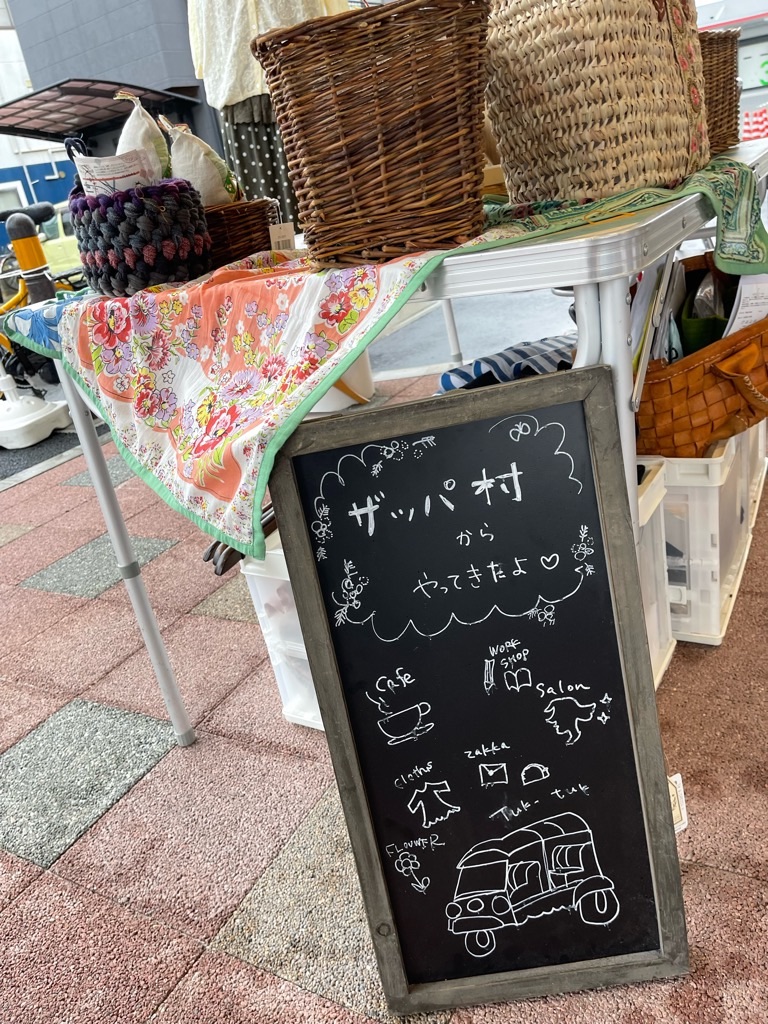 ザッパ村
から
やってきたよ♡
WORK
SHOP
Cafe
Salon
zakka
Cloths
Tuk-tuk
FLOUWER